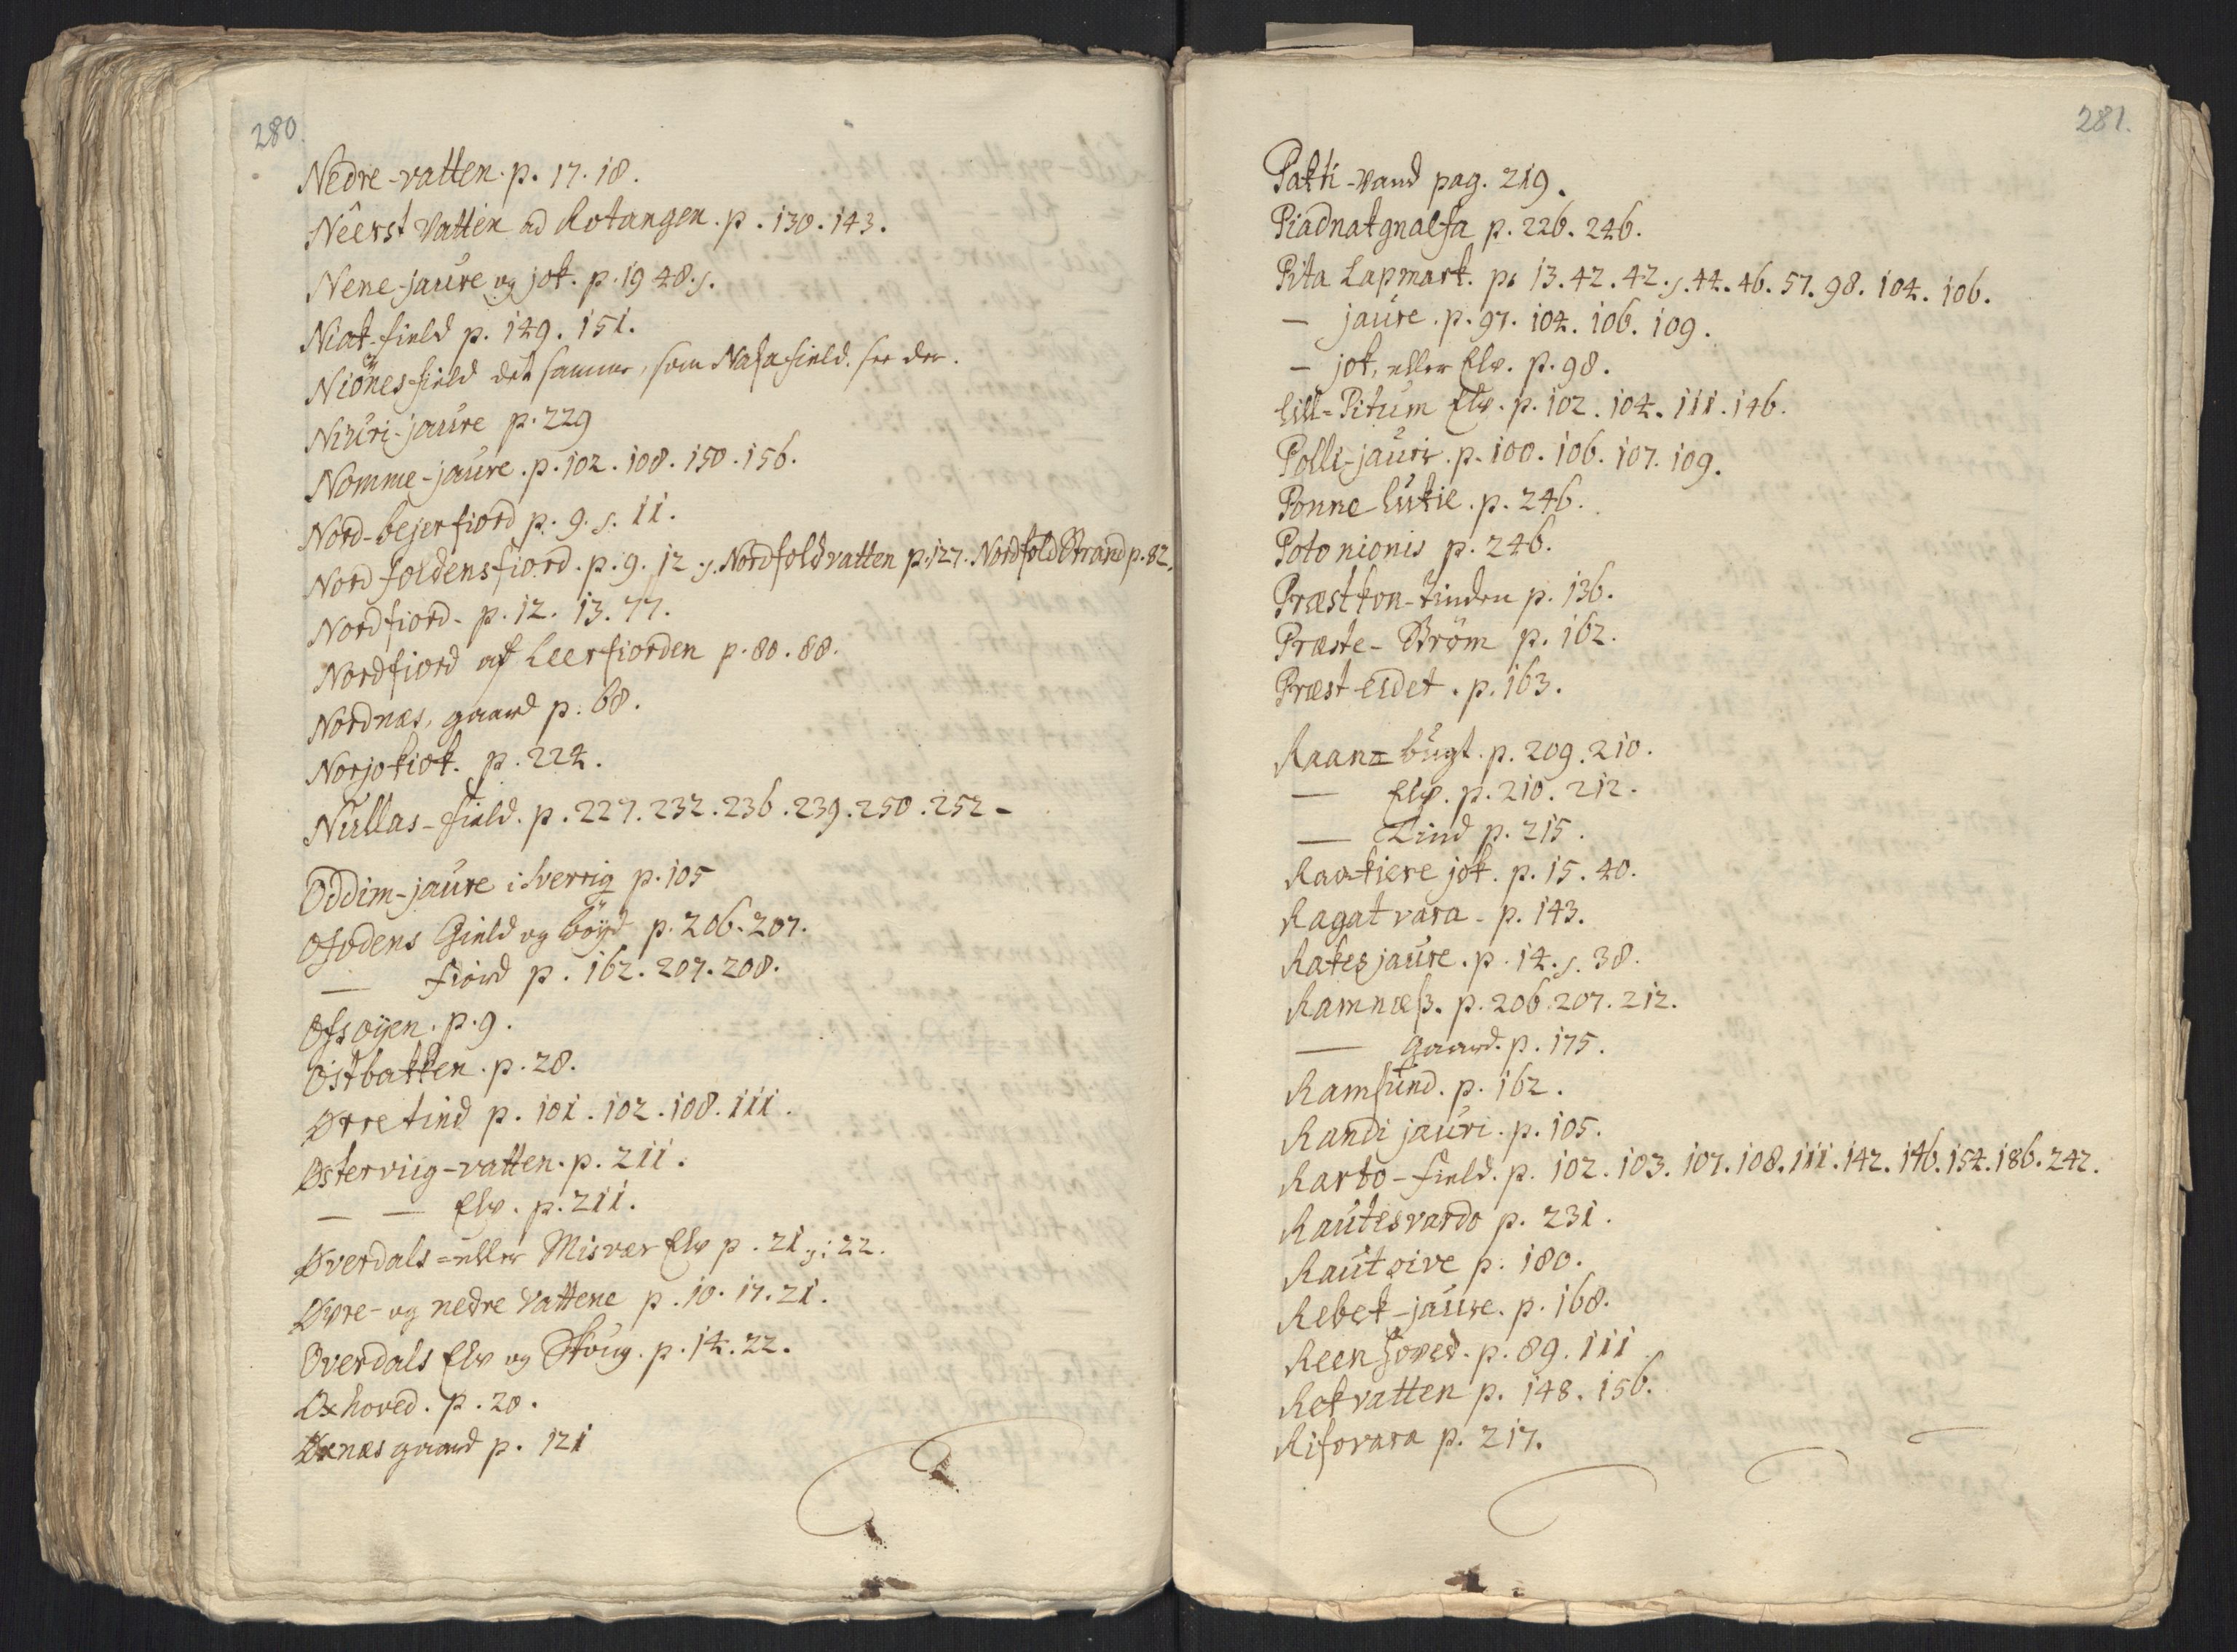 280.
Nedre-vatten. p. 17. 18.
Nêerst Vatten ad Rotangen. p. 130. 143.
Nene-jaure og jok. p. 19 48. s.
Niak-field p. 149. 151.
Niönes-field det samme, som Nasafield. see der.
Niuri-jaure p. 229
Nomme-jaure. p. 102. 108. 150. 156.
Nord-bejerfiord p. 9. s. 11.
Nord foldensfiord. p. 9. 12 s. Nordfoldvatten p. 127. Nordfold Strand p. 82.
Nordfiord. p. 12. 13. 77.
Nordfiord af Leerfiorden p. 80. 88.
Nordnæs, gaard p. 68.
Norjokiok. p. 224.
Nullas-field. p. 227. 232. 236. 239. 250. 252-
Oddim-jaure i Sverrig p. 105
Ofodens Gield og böyd p. 206. 207.
— fiord p. 162. 207. 208.
Ofsøyen. p. 9.
Østbakken. p. 28.
Ørretind p. 101. 102. 108. 111.
Østerviig-vatten. p. 211.
— — Elv. p. 211.
Øverdals = eller Misvær Elv p. 21. s: 22.
Øvre- og nedre Vattene p. 10. 17. 21.
Overdals Elv og Skoug. p. 14. 22.
Oxhoved. p. 20.
Øxnæs gaard p. 121
281.
Pakti-Vand pag. 219.
Piadnakgnalfa p. 226. 246.
Pita Lapmark. p. 13. 42. 42. s. 44. 46. 57. 98. 104. 106.
— jaure. p. 97. 104. 106. 109.
— jok, eller Elv. p. 98.
Lill-Pitum Elv. p. 102. 104. 111. 146.
Polli-jauri. p. 100. 106. 107. 109.
Ponne-lukie. p. 246.
Potonionis p. 246.
Præstkon-tinden p. 136.
Præste-Strøm p. 162.
Præst-eidet. p. 163.
Raan= bugt. p. 209. 210.
— Elv. p. 210. 212.
— Tind p. 215.
Raakiere jok. p. 15. 40.
Ragatvara - p. 143.
Rakesjaure. p. 14. s. 38.
Ramnæß. p. 206. 207. 212.
— gaard. p. 175.
Ramsund. p. 162.
Randi jauri. p. 105.
Rarto-field. p. 102. 103. 107. 108. 111. 142. 146. 154. 186. 242.
Rautesvardo p. 231.
Rautoive p. 180.
Rebek-jaure. p. 168.
Reenhoved. p. 89. 111
Rekvatten p. 148. 156.
Rifovara p. 217.